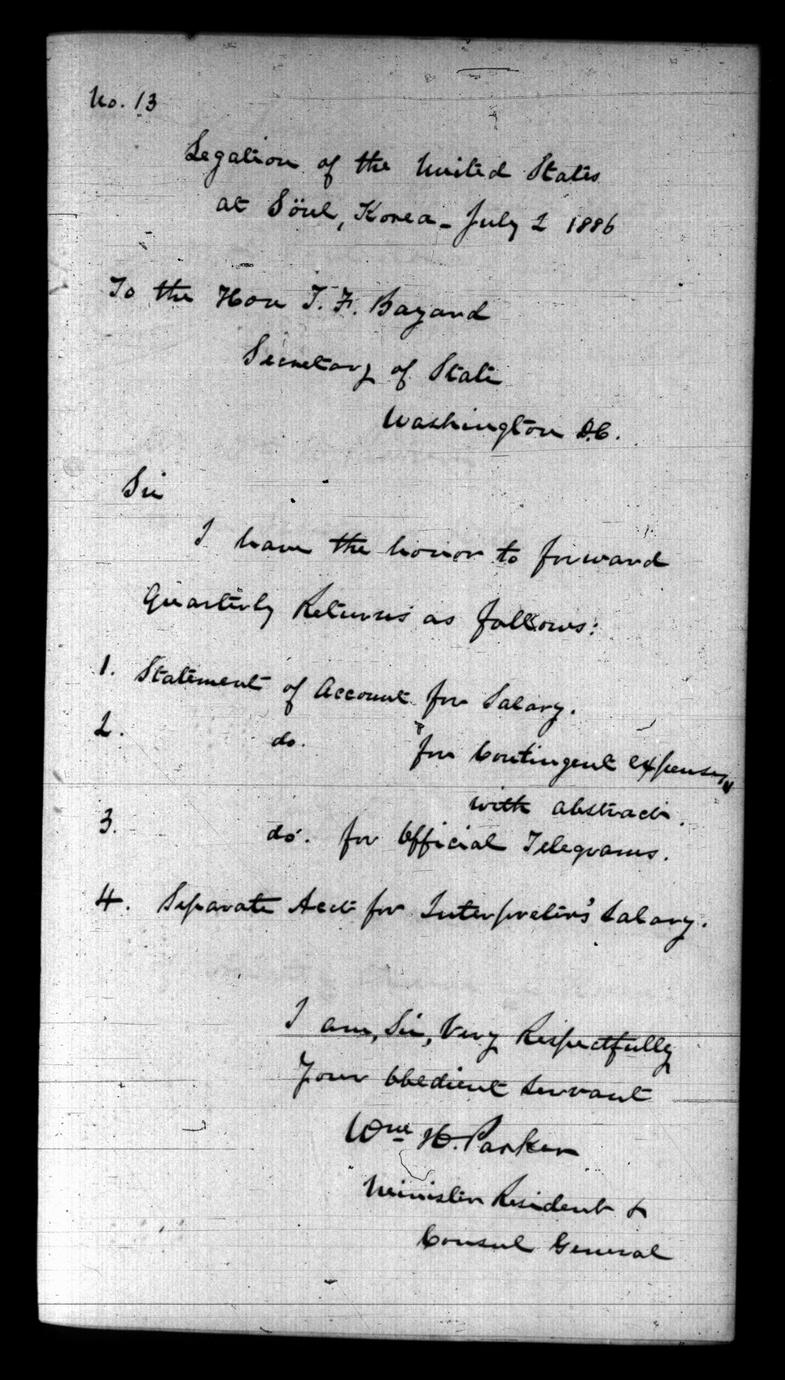 No. 13
Legation of the United States
at Söul, Korea - July 2 1886
To the Hon T. F. Bayard
Secretary of State
Washington D.C.
Sir
I have the honor to forward
Quarterly Returns as follows:
1. Statement of Account for Salary.
2. do. for Contingent expenses,
with abstract.
3. do. for Official Telegrams.
4. Separate Acct for Interpreter's Salary.
I am, Sir, Very Respectfully
Your Obedient Servant
Wm H. Parker
Minister Resident &
Consul General